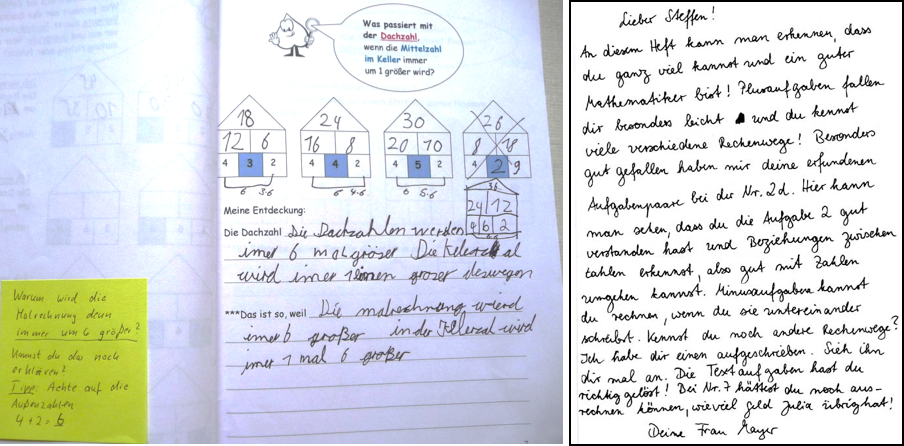 Was passiert mit
der Dachzahl,
wenn die Mittelzahl
im Keller immer
um 1 größer wird?
18
12 6
4 3 2
6 3·6
24
16 8
4 4 2
6 4·6
30
20 10
4 5 2
6 5·6
26
8 18
4 2 9
36
24 12
4 6 2
Meine Entdeckung:
Die Dachzahl Die Dachzahlen werden
imer 6 mal gröser Die
wird imer 1 groser deswegen
***Das ist so, weil Die malrechnung wierd
imer 6 großer in der Kellerzal wird
imer 1 mal 6 großer
Warum wird die
Malrechnung denn
immer um 6 größer?
Kannst du das noch
erklären?
Tipp: Achte auf die
Außenzahlen
4 + 2 = 6
Lieber Steffen!
An diesem Heft kann man erkennen, dass
du ganz viel kannst und ein guter
Mathematiker bist! Plusaufgaben fallen
dir besonders leicht und du kennst
viele verschiedene Rechenwege! Besonders
gut gefallen haben mir deine erfundenen
Aufgabenpaare bei der Nr. 2d. Hier kann
man sehen, dass du die Aufgabe 2 gut
verstanden hast und Beziehungen zwischen
Zahlen erkennst, also gut mit Zahlen
umgehen kannst. Minusaufgaben kannst
du rechnen, wenn du sie untereinander
schreibst. Kennst du noch andere Rechenwege?
Ich habe dir einen aufgeschrieben. Sieh ihn
dir mal an. Die Textaufgaben hast du
richtig gelöst! Bei Nr. 7 hättest du noch aus-
rechnen können, wie viel Geld Julia übrig hat!
Deine Frau Mayer